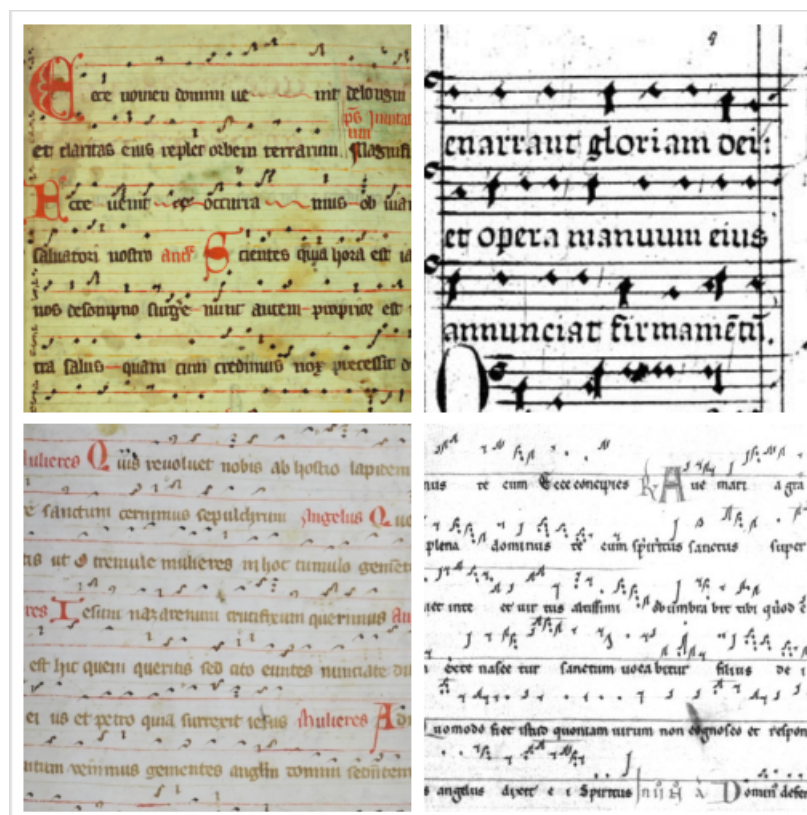 Ecce nomen domini ve nit de longin
ps Invitat
et claritas eius replet orbem terrarum Magnifi
Ecce venit occurra mus ob viam
salvatori nostro Scientes quia hora est ia
nos desompno surgere nunc autem proprior est
tra salus quam cum credimus nox precessit d
enarrant gloriam dei:
et opera manuum eius
annunciat firmamētū.
Mulieres Quis revolvet nobis ab hostio lapitem
sanctum cernimus sepulchrum Angelus Qu
tis ut o tremule mulieres in hoc tumulo gement
res Iesum nazarenum crucifixum querimus
est hic quem queritis sed cito euntes nunciate di
ei us et petro quia surrexit iesus Mulieres Ad
venimus gementes
nus te cum Ecce concipies Ave mari a gra
plena dominus te cum spiritus sanctus super
inte et vir tus altissimi obumbra bit tibi quod e
ecce nasce tur sanctum voca bitur filius de i
uomodo fiet istud quoniam virum non cognosco et respon
s angelus dixit e i Spiritus